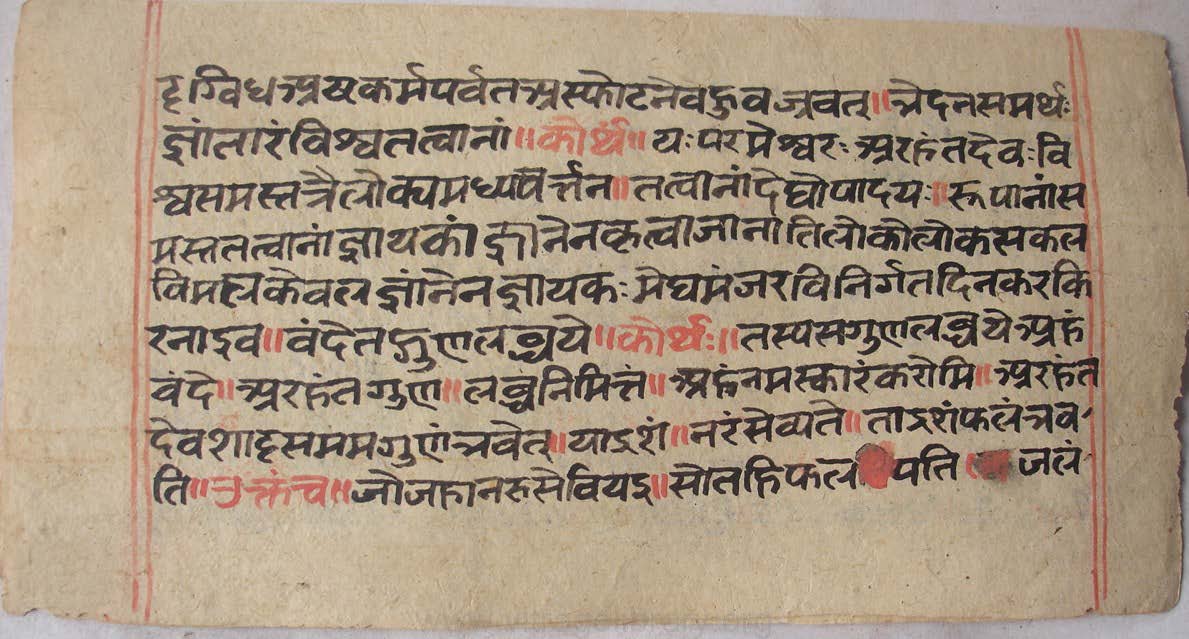 दृग्विधअष्टकर्मपर्वतअस्फोटनेवद्रुवज्रवत्॥भेदनसमर्थः
ज्ञांतारंविश्वतत्वानां॥कोर्थं॥यःपरमेश्वरःअरहंतदेवःवि
श्वसमस्तत्रैलोक्यमध्यपवर्त्तन॥तत्वानांदेघोपादयः॥रूपानांस
मस्ततत्वानांज्ञायकांज्ञानेनकृत्वाजानातिलोकोलोकसकल
विमलकेवलज्ञांनेनज्ञायकःमेघमंजरविनिर्गतदिनकरकि
रनाइव॥वंदेतद्गुणलब्धये॥कोर्थः॥तस्यसगुणलब्धयेअहं
वंदे॥अरहंतगुण॥लब्धनिमित्तं॥अहंनमस्कारंकरोमि॥अरहंत
देवशादृसममगुणंभवेत्॥याइशं॥नरंसेव्यते॥ताइशंफलंभव
ति॥उक्तंच॥जोजहानरुसेवियइ॥सोतहिफल पति जलं